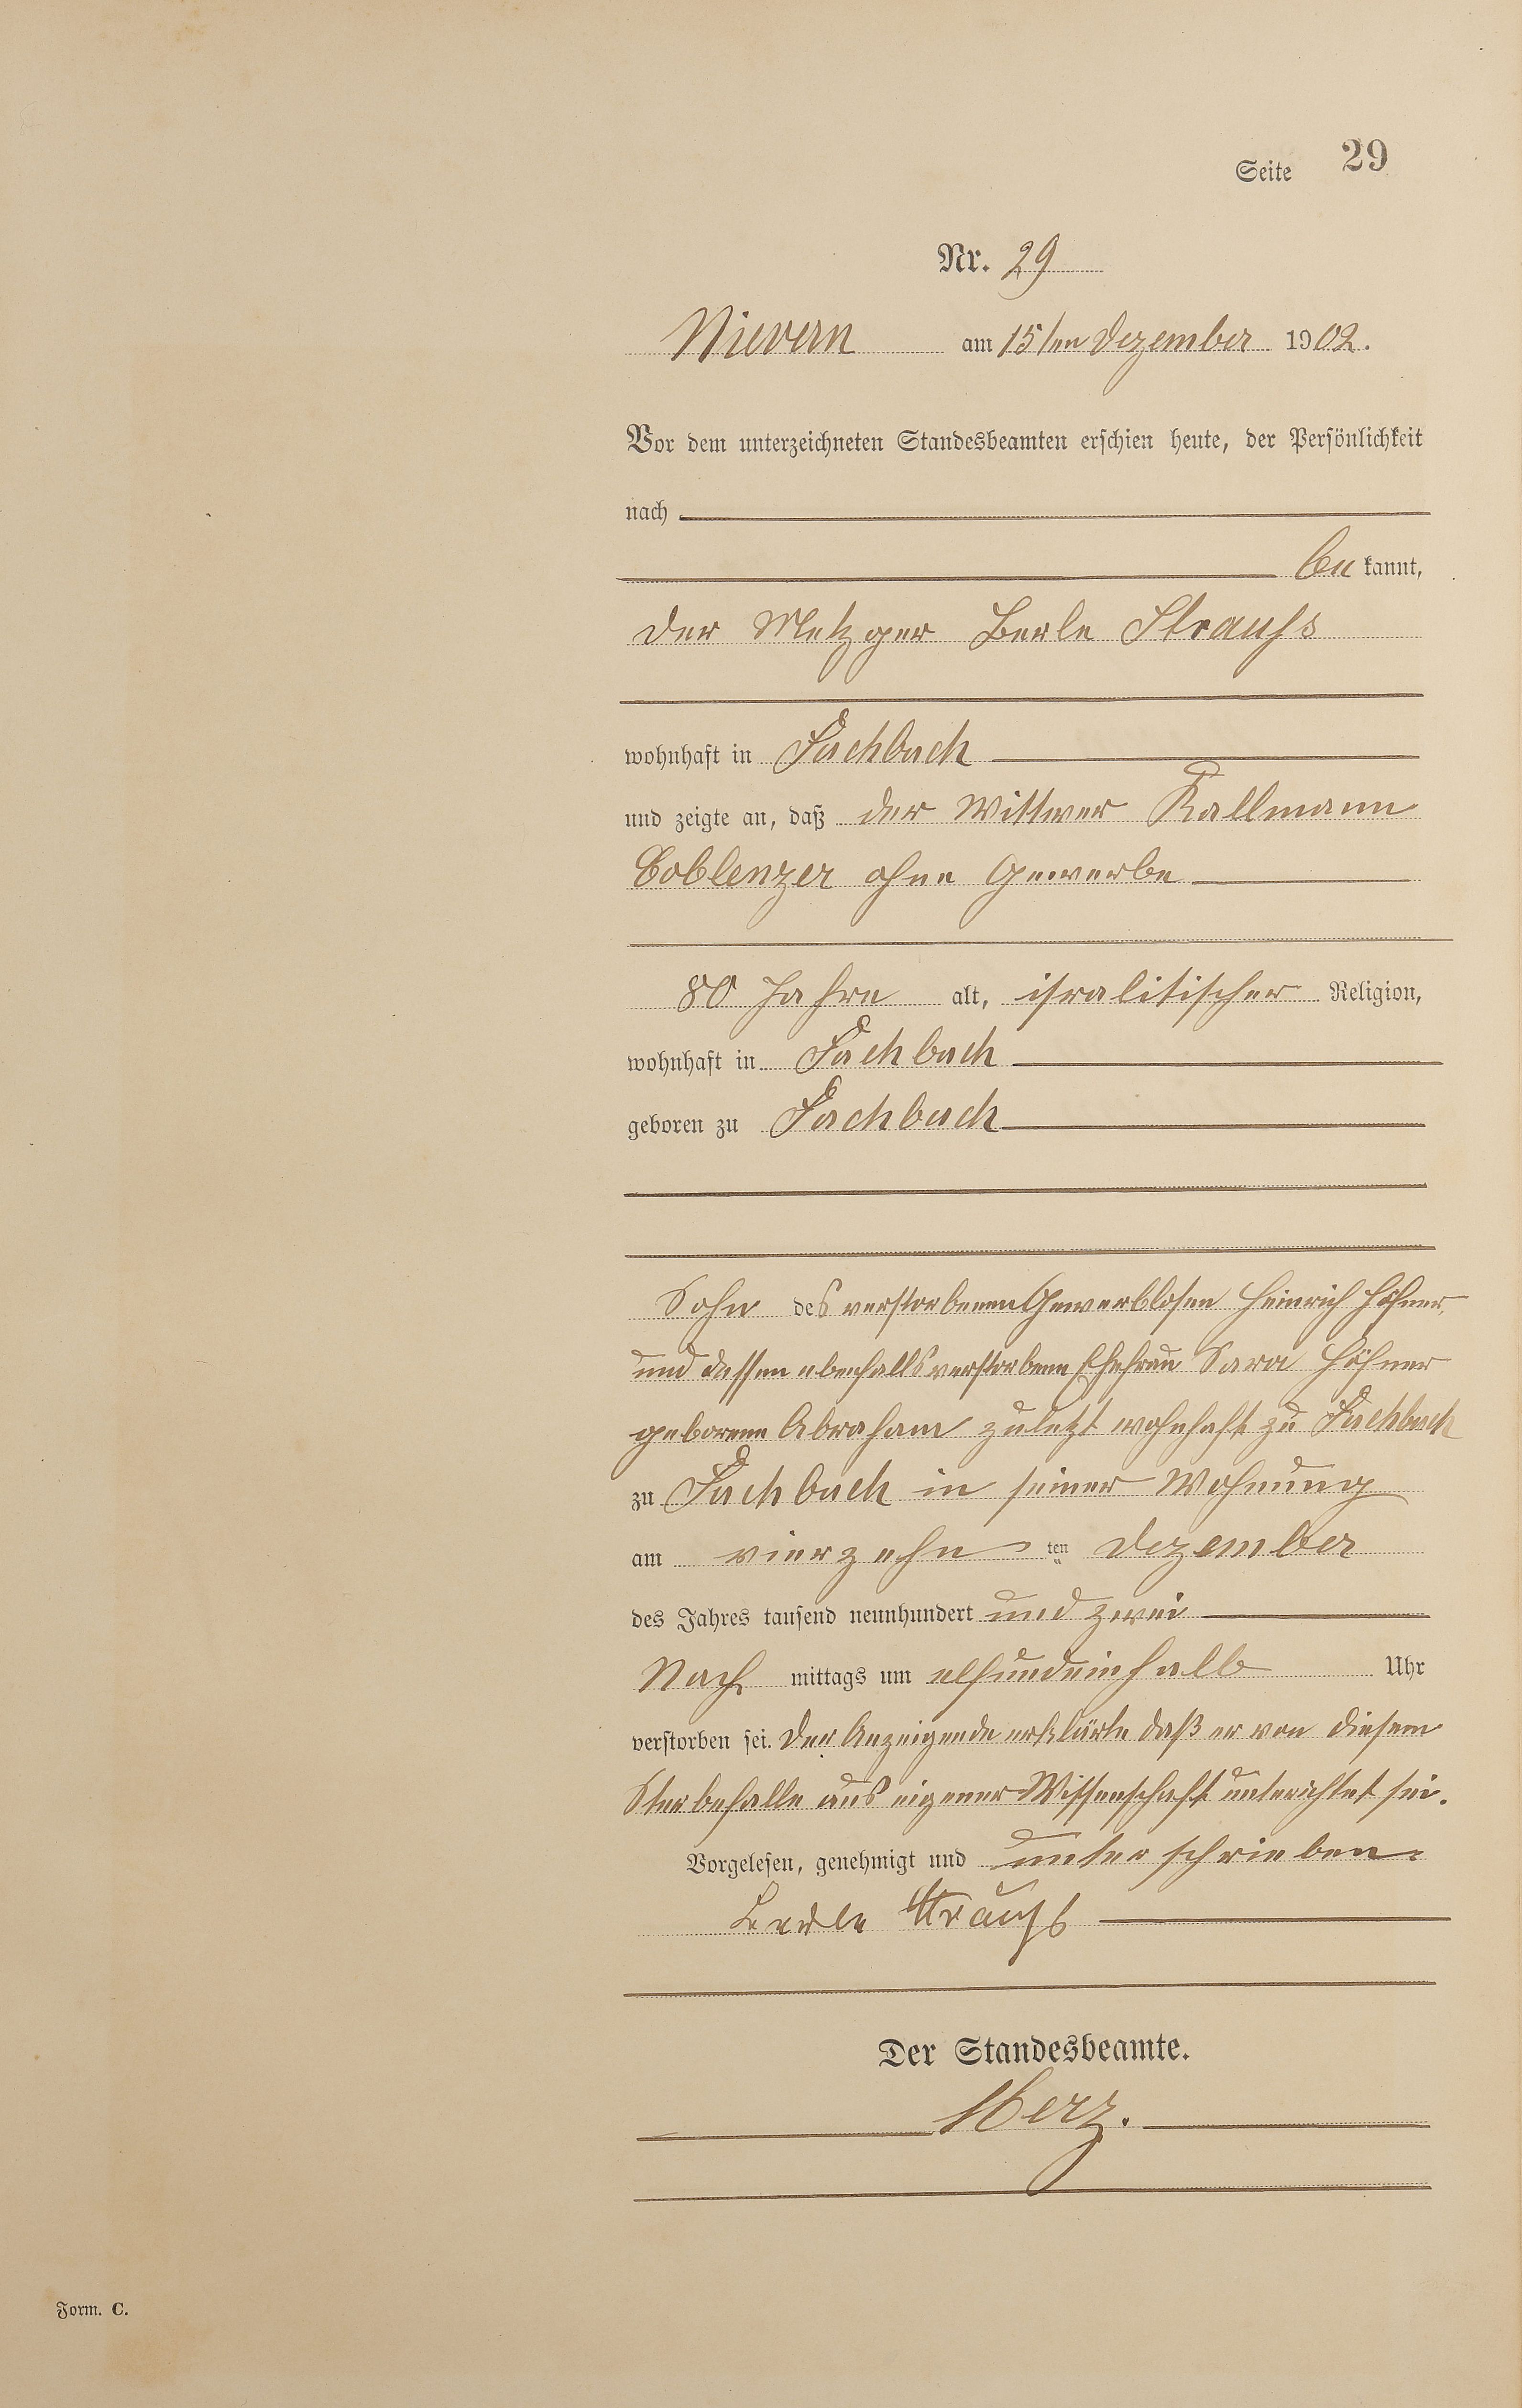 Seite 29
Nr. 29
Nievern am 15ten Dezember 1902.
Vor dem unterzeichneten Standesbeamten erschien heute, der Persönlichkeit
nach
be kannt,
der Metzger Berle Strauss
wohnhaft in Fachbach
und zeigte an, daß der Wittwer Kallmann
Coblenzer ohne Gewerbe
80 Jahre alt, isralitischer Religion,
wohnhaft in Fachbach
geboren zu Fachbach
Sohn des verstorbenen Gewerblosen Heinrich Höhner,
und dessen ebenfalls verstorbene Ehefrau Sara Höhner
geborene Abraham zuletzt wohnhaft zu Fachbach
zu Fachbach in seiner Wohnung
am vierzehn ten Dezember
des Jahres tausend neunhundert und zwei
Nach mittags um elfundeinhalb Uhr
verstorben sei. Der Anzeigende erklärte daß er von diesem
Sterbefalle aus eigener Wissenschaft unterichtet sei.
Vorgelesen, genehmigt und unterschrieben.
Berle Strauß
Der Standesbeamte.
Herz.
Form. C.